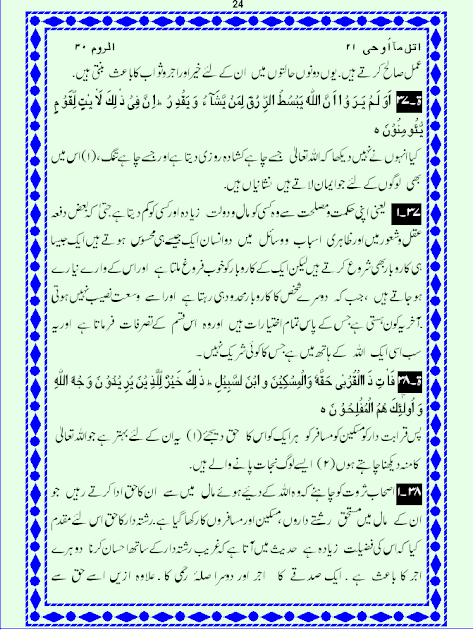 24
اتل مآاوحی ۲۱ الروم ۳۰
عمل صالح کرتے ہیں۔ یوں دونوں حالتوں میں ان کے لئے خیر اور اجر و ثواب کا باعث بنتی ہیں۔
ۃ۔۳۷ اَوَ لَمْ یَرَوْا اَنَّ اللّٰہَ یَبْسُطُ الرِّزْقَ لِمَنْ یَّشَآءُ وَیَقْدِرُ ط اِنَّ فِیْ ذٰلِکَ لَاٰ یٰتٍ لِّقَوْمٍ
یُّئْومِنُوْنَ ہ
کیا انہوں نے نہیں دیکھا کہ اللہ تعالٰی جسے چاہے کشادہ روزی دیتا ہے اور جسے چاہے تنگ، (۱) اس میں
بھی لوگوں کے لئے جو ایمان لاتے ہیں نشانیاں ہیں۔
۳۷۔۱ یعنی اپنی حکمت و مصلحت سے وہ کسی کو مال و دولت زیادہ اور کسی کو کم دیتا ہے حتٰی کہ بعض دفعہ
عقل و شعور میں اور ظاہری اسباب و وسائل میں دو انسان ایک جیسے ہی محسوس ہوتے ہیں ایک جیسا
ہی کاروبار بھی شروع کرتے ہیں لیکن ایک کے کاروبار کو خوب فروغ ملتا ہے اور اس کے وارے نیارے
ہو جاتے ہیں، جب کہ دوسرے شخص کا کاروبار محدود ہی رہتا ہے اور اسے وسعت نصیب نہیں ہوتی
۔آخر یہ کون ہستی ہے جس کے پاس تمام اختیارات ہیں اور وہ اس قسم کے تصرفات فرماتا ہے اور یہ
سب اسی ایک اللہ کے ہاتھ میں ہے جس کا کوئی شریک نہیں۔
ۃ۔۳۸ فَاٰتِ ذَا الْقُرْبٰی حَقَّہٗ وَالْمِسْکِیْنَ وَابْنَ السَّبِیْلِ ط ذٰلِکَ خَیْرٌ لِّلَّذِیْنَ یُرِیْدُوْنَ وَجْہَ اللّٰہِ
وَ اُولٰٓئِکَ ھُمُ الْمُفْلِحُوْنَ ہ
پس قرابت دار کو مسکین کو مسافر کو ہر ایک کو اس کا حق دیجئے (۱) یہ ان کے لئے بہتر ہے جو اللہ تعالٰی
کا منہ دیکھنا چاہتے ہوں (۲) ایسے لوگ نجات پانے والے ہیں۔
۳۸۔۱ اصحاب ثروت کو چاہئے کہ وہ اللہ کے دئیے ہوئے مال میں سے ان کا حق ادا کرتے رہیں جو
ان کے مال میں مستحق رشتے داروں، مسکین اور مسافروں کا رکھا گیا ہے۔ رشتہ دار کا حق اس لئے مقدم
کیا کہ اس کی فضیلت زیادہ ہے حدیث میں آتا ہے کہ غریب رشتہ دار کے ساتھ احسان کرنا دوہرے
اجر کا باعث ہے۔ ایک صدقے کا اجر اور دوسرا صلۂ رحمی کا۔ علاوہ ازیں اسے حق سے